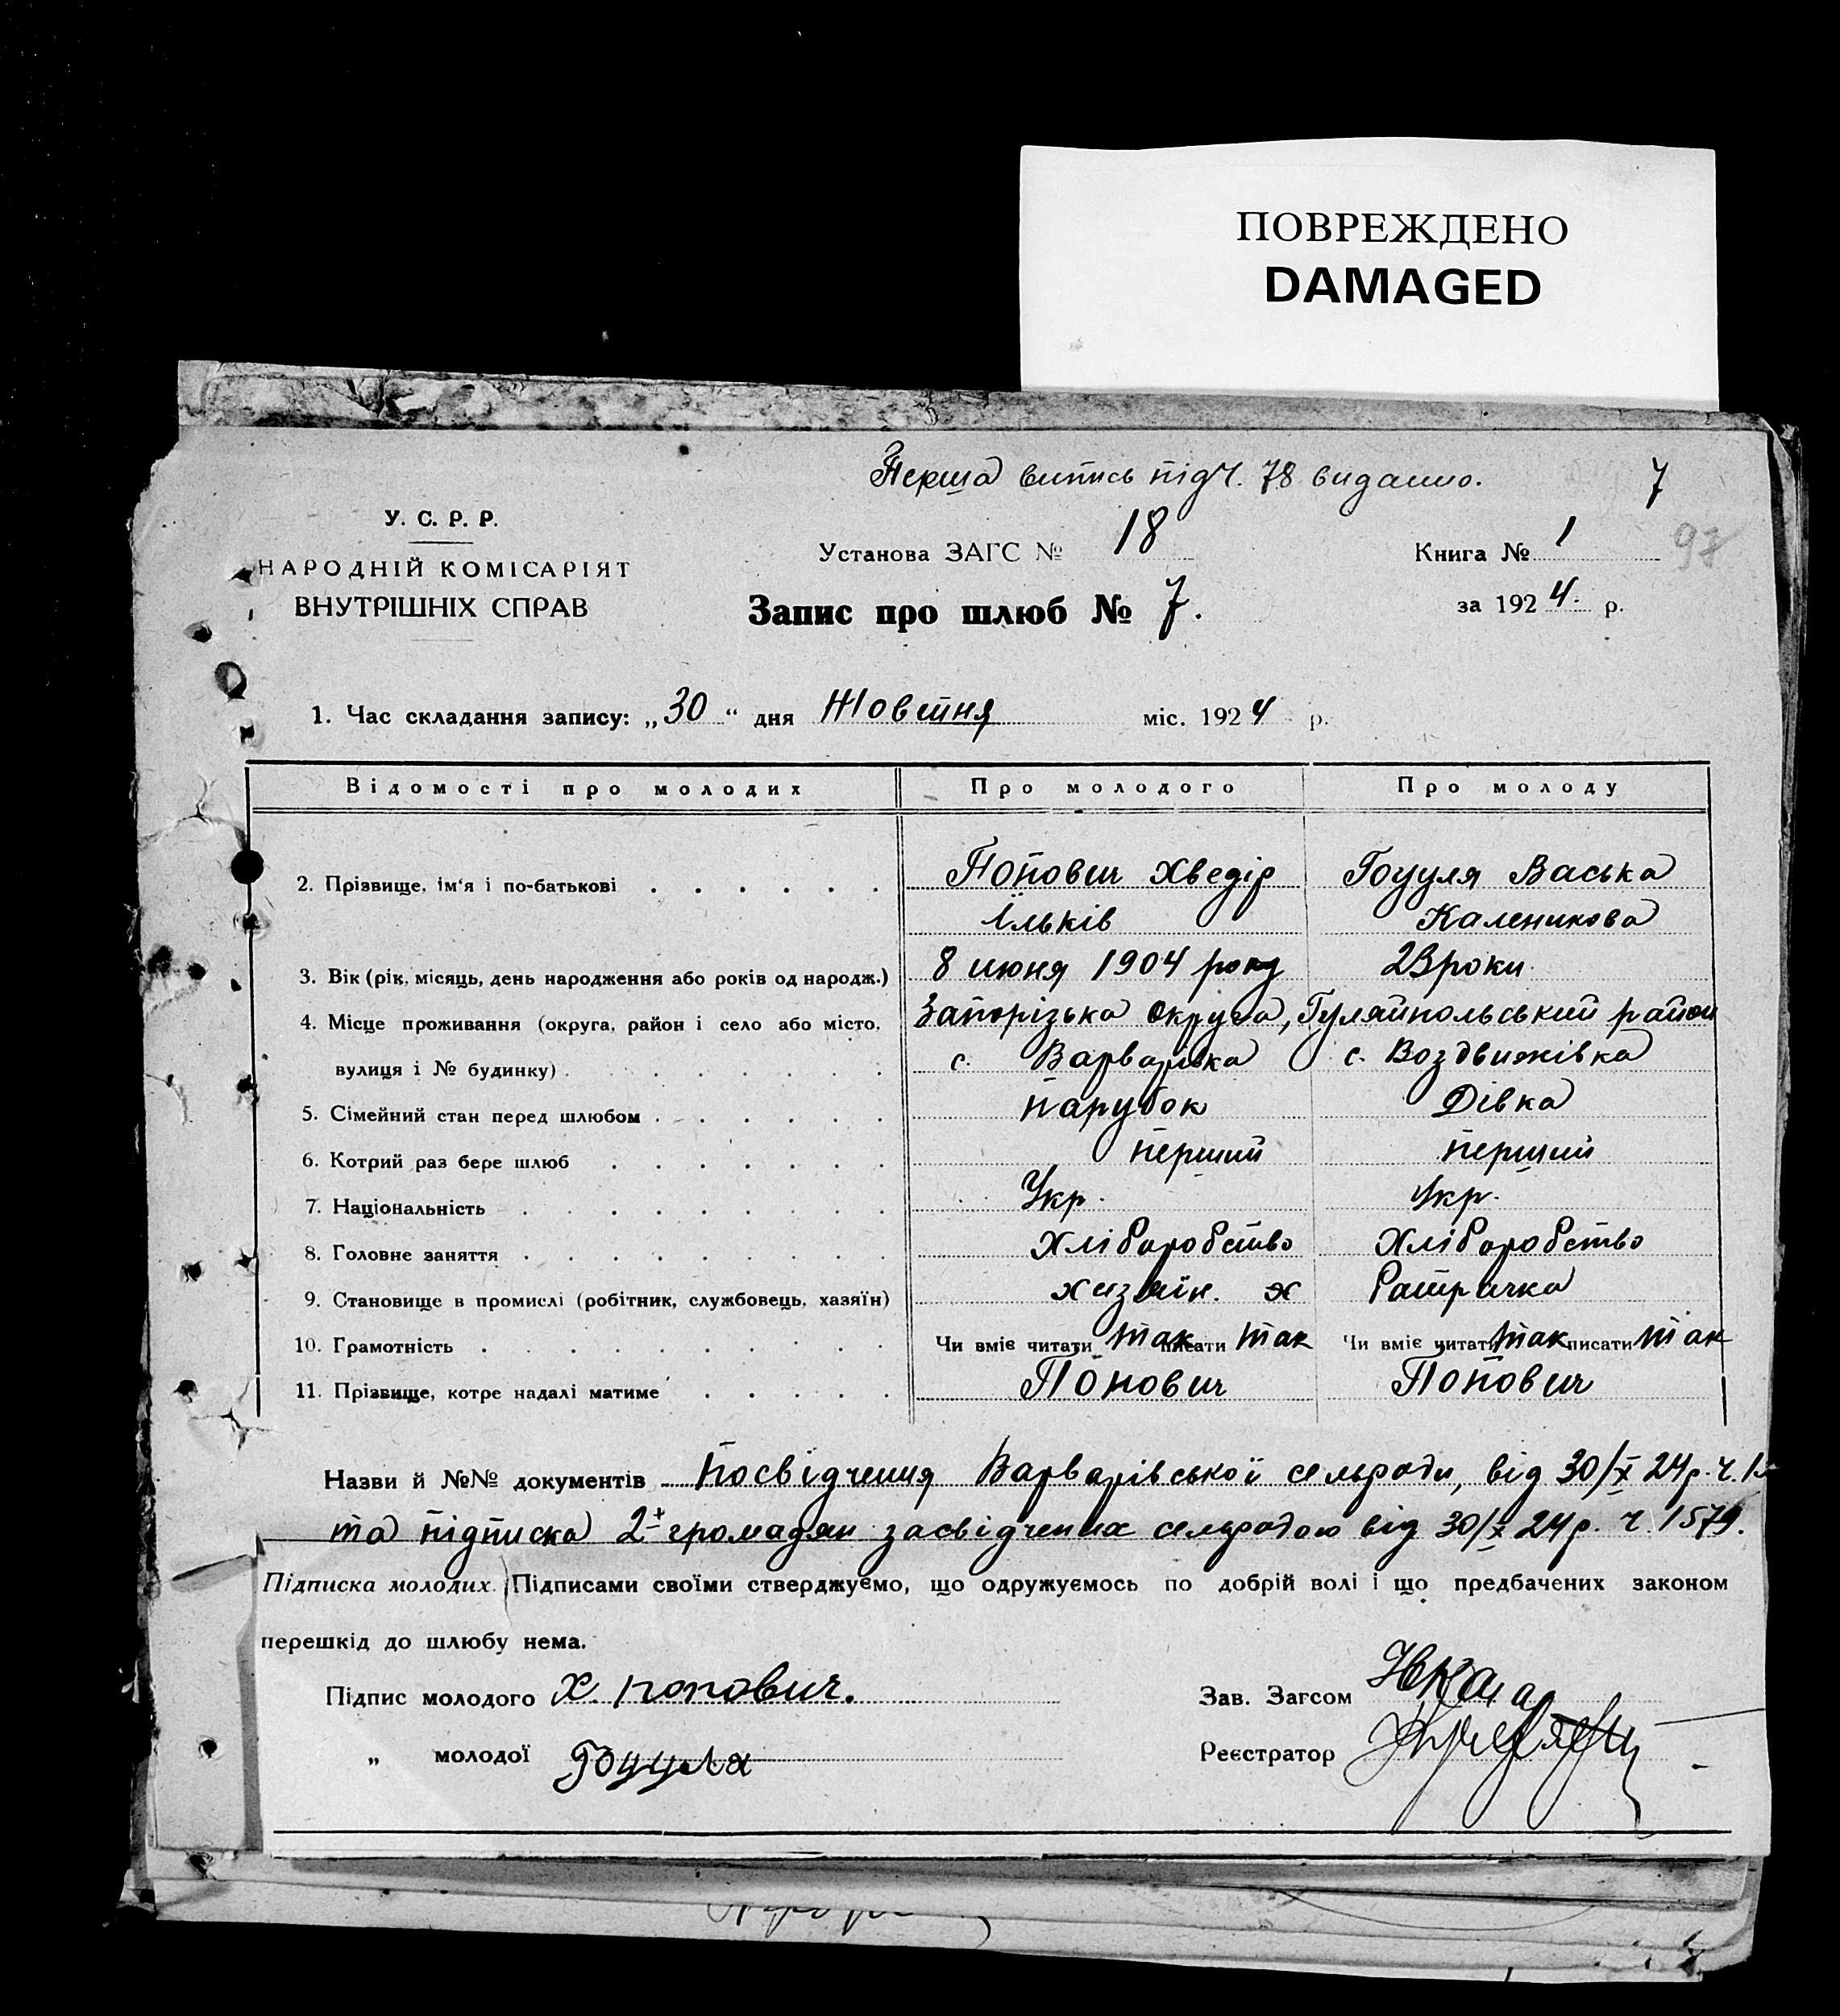 ПОВРЕЖДЕНО
DAMAGED
Перша випись під Ч. 78 видано.
7
У. С. Р. Р.
Установа ЗАГС № 18
Книга № 1
97
НАРОДНІЙ КОМІСАРІЯТ
ВНУТРІШНІХ СПРАВ
Запис про шлюб № 7.
за 1924. р.
1. Час складання запису: „30“ дня Жовтня міс. 1924 р.
Відомості про молодих Про молодого Про молоду
2. Прізвище, ім‘я і по-батькові Попович Хведір Гоцуля Васька
Ільків Каленикова
3. Вік (рік, місяць, день народження або років од народж.) 8 июня 1904 року 23 роки.
4. Місце проживання (округа, район і село або місто, Запорізька округа, Гуляйпольський район
вулиця і № будинку) с. Варварівка с. Воздвижівка
5. Сімейний стан перед шлюбом Парубок Дівка
6. Котрий раз бере шлюб перший перший
7. Національність Укр. Укр.
8. Головне заняття Хліборобство Хліборобство
9. Становище в промислі (робітник, службовець, хазяїн) хазяїн. х
10. Грамотність Чи вміє читати так писати так Чи вміє читати так писати так
11. Прізвище, котре надалі матиме Попович Попович
Назви й №№ документів Посвідчення Варварівської сельради, від 30/X 24р. ч.
та підписка 2х громадян засвідчена сельрадою від 30/X 24р. ч. 1579.
Підписка молодих. Підписами своїми стверджуємо, що одружуємось по добрій волі і що предбачених законом
перешкід до шлюбу нема.
Підпис молодого Х. Попович.
Зав. Загсом
„ молодої Гоцуля
Реєстратор